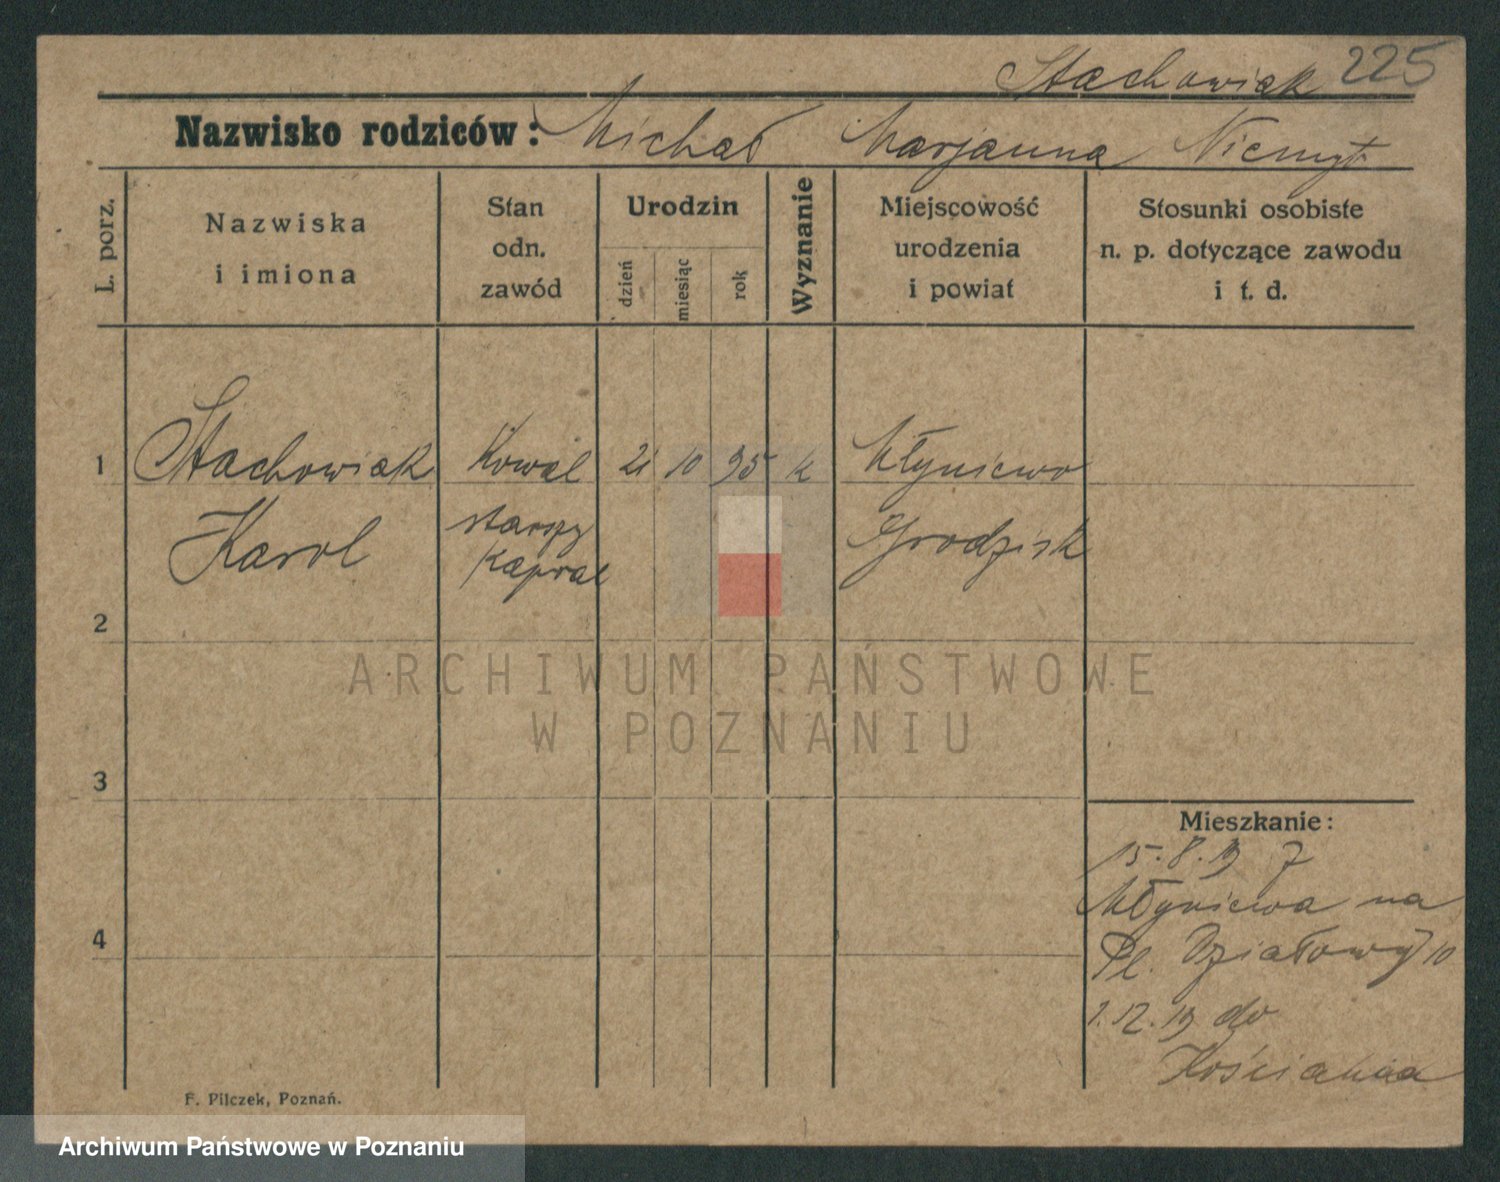 Stachowiak 225
Nazwisko rodziców: Michał Marjanna Niemyt
L. porz.
Nazwiska
i imiona
Stan
odn.
zawód
Urodzin
dzień
miesiąc
rok
Wyznanie
Miejscowość
urodzenia
i powiat
Stosunki osobiste
n. p. dotyczące zawodu
i t. d.
1 Stachowiak Kowal 21 10 95 k Młyniewo
Karol starszy Grodzisk
kapral
2
ARCHIWUM PAŃSTWOWE
W POZNANIU
3
Mieszkanie:
15.8.19 z
Młyniewa na
4
Pl. Działowy 10
1.12.19 do
Kościana
F. Pilczek, Poznań.
Archiwum Państwowe w Poznaniu